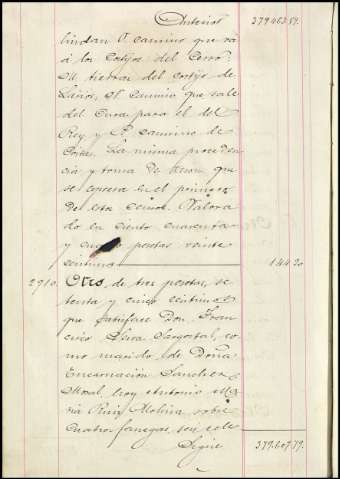 Anterior 379463.59.
lindan O. camino que va
á los Cortijos del Cerro
M. tierras del cortijo de
S. camino que sale
del Cura para el del
Rey y P. camino de
La misma proceden
cia y toma de razon que
se espresa en el primero
de esta censo. Valora
do en ciento cuarenta
y cuatro pesetas veinte
centimos 144 20
2910. Otro, de tres pesetas, se
tenta y cinco centimos
que satisface Don Fran
cisco co
mo marido de Doña
Encarnacion Sanchez
Moral, hoy Antonio Ma
ria Ruiz Molina sobre
cuatro fanegas, seis cele
Sigue 379.607.79.